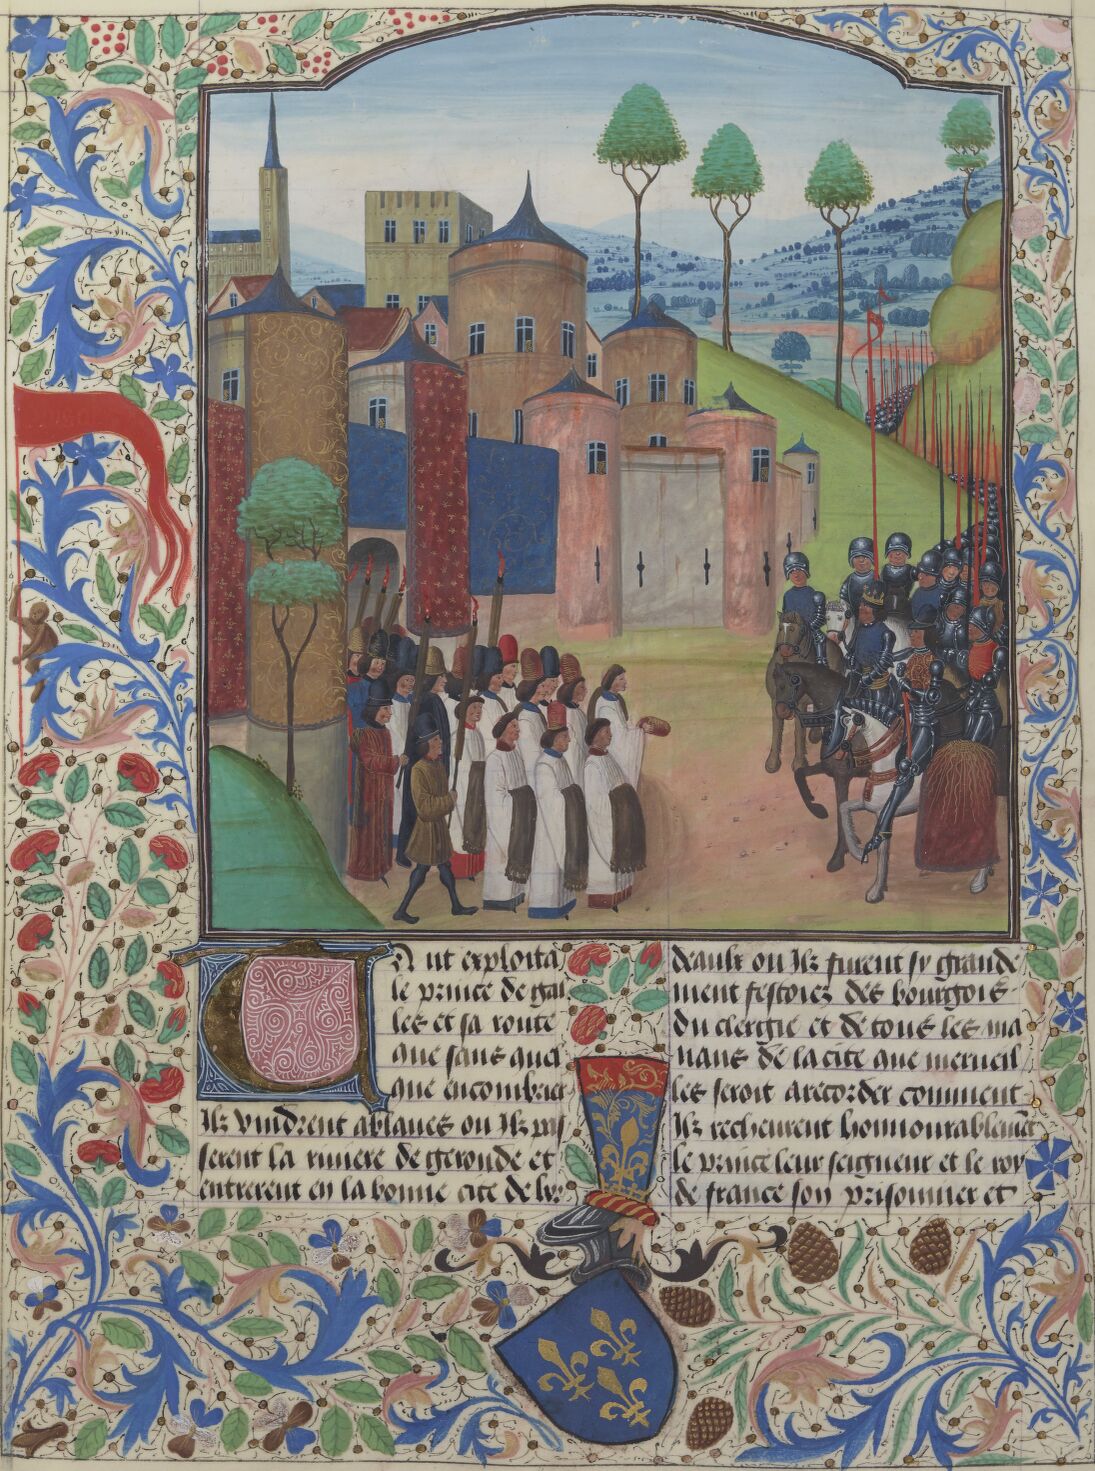 Tant exploita
le prince de gal
les et sa route
que sans quel
que encombrier
Ilz vindrent ablaues ou Ilz pas
serent la riuiere de geronde et
entrerent en la bonne cite de bor
deaulx ou Ilz furent sy grande
ment festoiez des bourgois
du clergie et de tous les ma
nans de la cite que merueil
les seroit arecorder comment
Ilz recheurent honnourablement
le prince leur seigneur et le roy
de france son prisonnier et